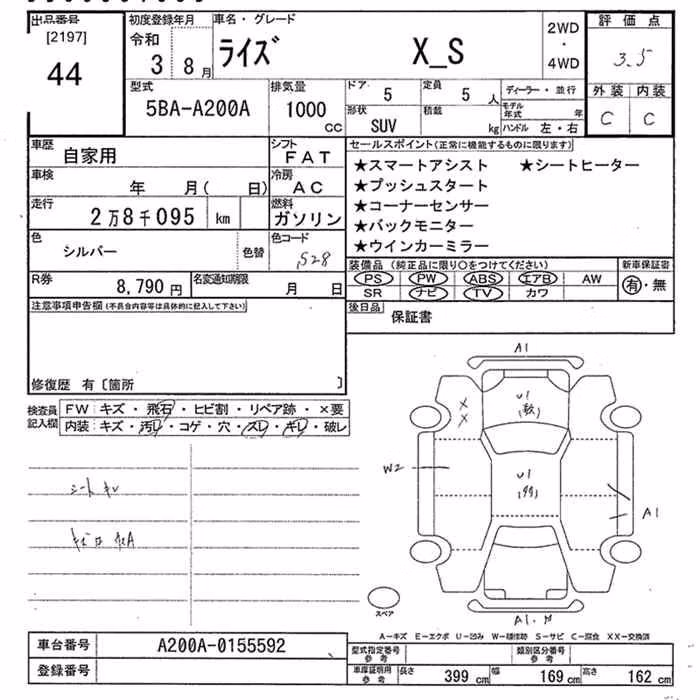 出品番号
[2197]
44
初度登録年月
令和
3 8月
車名・グレード
ライズ X_S
2WD
・
4WD
評価点
3.5
外装 内装
C C
型式
5BA-A200A
排気量
1000
CC
ドア
5
定員
5人
形状
SUV
積載
kg
ディーラー・並行
モデル年式 年
ハンドル 左・右
車歴
自家用
シフト
FAT
車検
年 月( 日)
冷房
AC
走行
2万8千095 km
燃料
ガソリン
色
シルバー
色替
色コード
S28
R券
8,790円
名変通知期限
月 日
セールスポイント(正常に機能するものに限ります)
★スマートアシスト ★シートヒーター
★プッシュスタート
★コーナーセンサー
★バックモニター
★ウインカーミラー
装備品(純正品に限り○をつけてください)
PS PW ABS エアB AW
SR ナビ TV カワ
新車保証書
有・無
後日品
保証書
注意事項申告欄(不具合内容等は具体的に記入して下さい)
修復歴 有〔箇所 〕
検査員
記入欄
FW キズ・飛石・ヒビ割・リペア跡・×要
内装 キズ・汚レ・コゲ・穴・スレ・キレ・破レ
シート キレ
A1
U1
X
X
W2
U1
A1
スペア
A1.
A-キズ E-エクボ U-凹み W-補修跡 S-サビ C-腐食 XX-交換済
車台番号
A200A-0155592
登録番号
型式指定番号
参考
類別区分番号
参考
車庫証明用
参考
長さ 399cm
幅 169cm
高さ 162cm